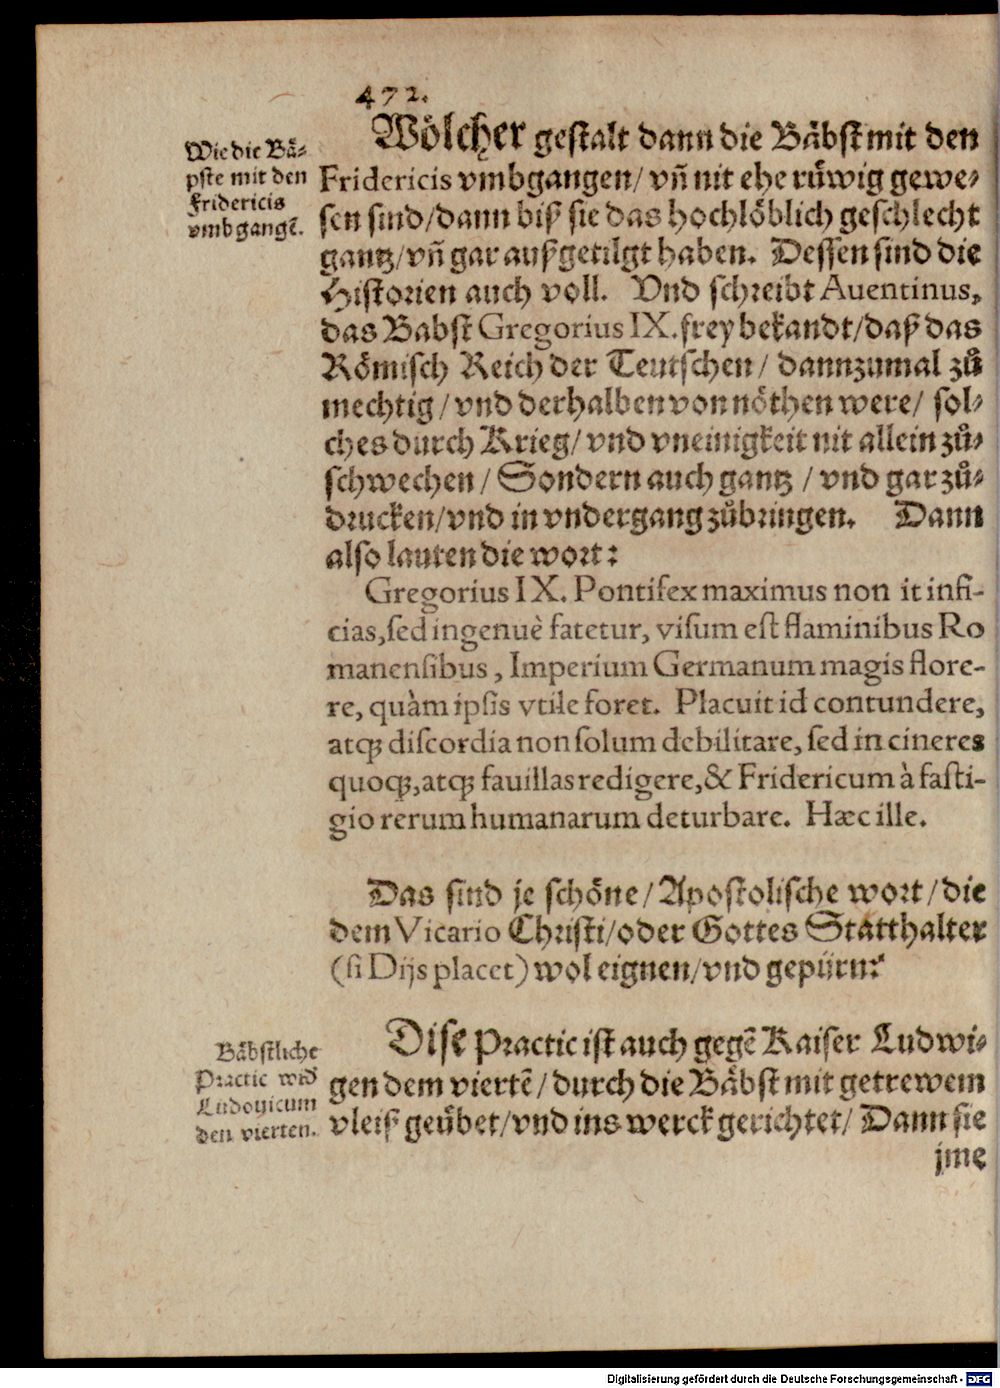 472.
Wie die Bä-
pste mit den
Fridericis
vmbgangẽ.
Wölcher gestalt dann die Bäbst mit den
Fridericis vmbgangen/ vñ nit ehe rüwig gewe-
sen sind/dann biß sie das hochlöblich geschlecht
gantz/vñ gar außgetilgt haben. Dessen sind die
Historien auch voll. Vnd schreibt Auentinus,
das Babst Gregorius IX. frey bekandt/daß das
Römisch Reich der Teutschen/ dannzumal zů
mechtig/ vnd derhalben von nöthen were/ sol-
ches durch Krieg/ vnd vneinigkeit nit allein zů-
schwechen/ Sondern auch gantz / vnd gar zů-
drucken/vnd in vndergang zůbringen. Dann
also lauten die wort:
Gregorius IX. Pontifex maximus non it infi-
cias, sed ingenuè fatetur, visum est flaminibus Ro
manensibus, Imperium Germanum magis flore-
re, quàm ipsis vtile foret. Placuit id contundere,
atq; discordia non solum debilitare, sed in cineres
quoq;, atq; fauillas redigere, & Fridericum à fasti-
gio rerum humanarum deturbare. Hæc ille.
Das sind je schöne/ Apostolische wort/ die
dem Vicario Christi/oder Gottes Statthalter
(si Dijs placet) wol eignen/vnd gepürn?
Bäbstliche
Practic wid
Ludouicum
den vierten.
Dise Practic ist auch gegẽ Kaiser Ludwi-
gen dem viertẽ/ durch die Bäbst mit getrewem
vleiß geübet/vnd ins werck gerichtet/ Dann sie
jme
Digitalisierung gefördert durch die Deutsche Forschungsgemeinschaft - DFG